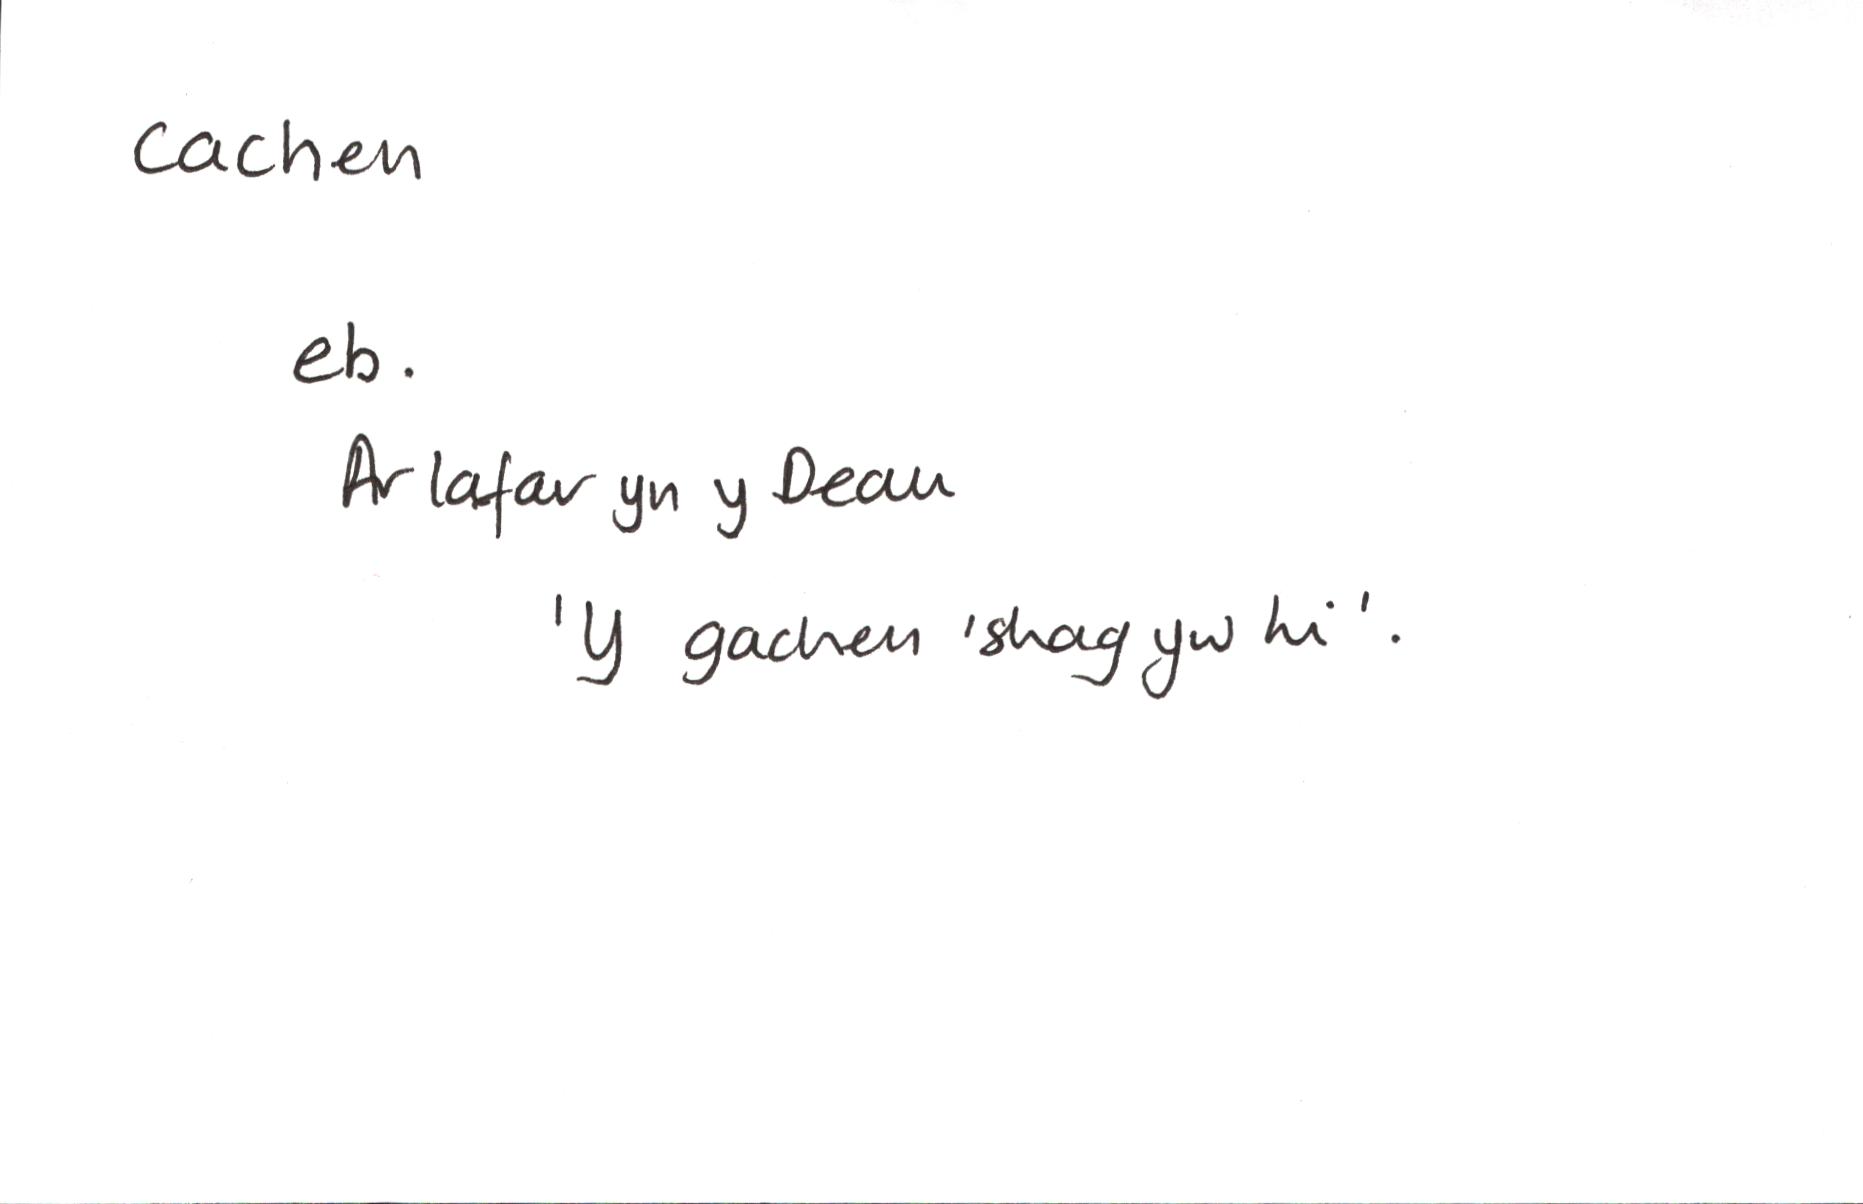 Cachen
eb.
Ar lafar yn y Deau
'Y gachen 'shag yw hi'.